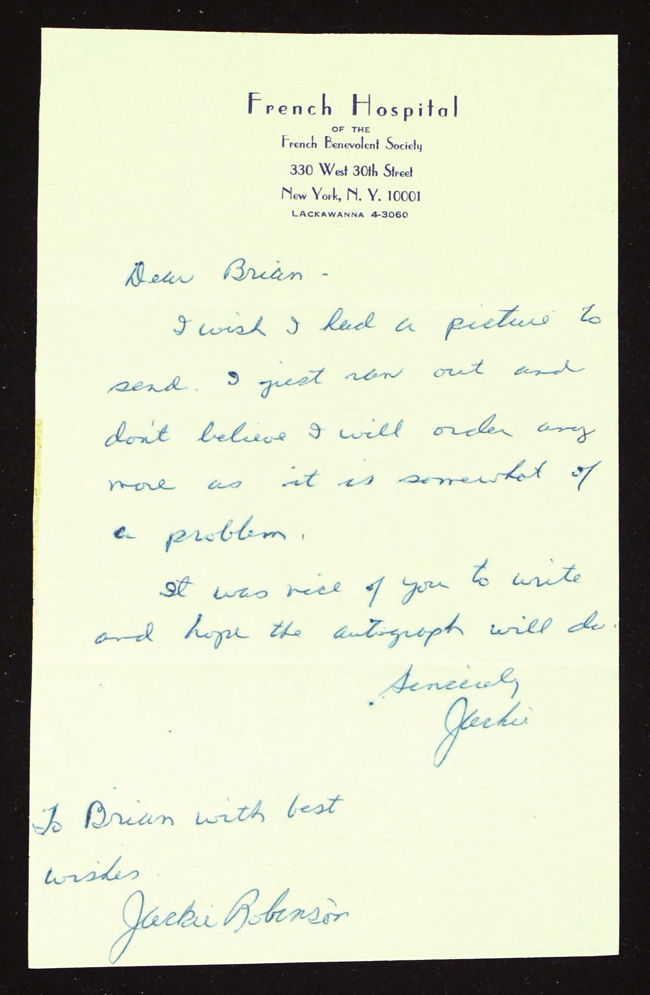 French Hospital
OF THE
French Benevolent Society
330 West 30th Street
New York, N. Y. 10001
LACKAWANNA 4-3060
Dear Brian -
I wish I had a picture to
send. I just ran out and
don't believe I will order any
more as it is somewhat of
a problem.
It was nice of you to write
and hope the autograph will do.
Sincerely
Jackie
To Brian with best
wishes
Jackie Robinson